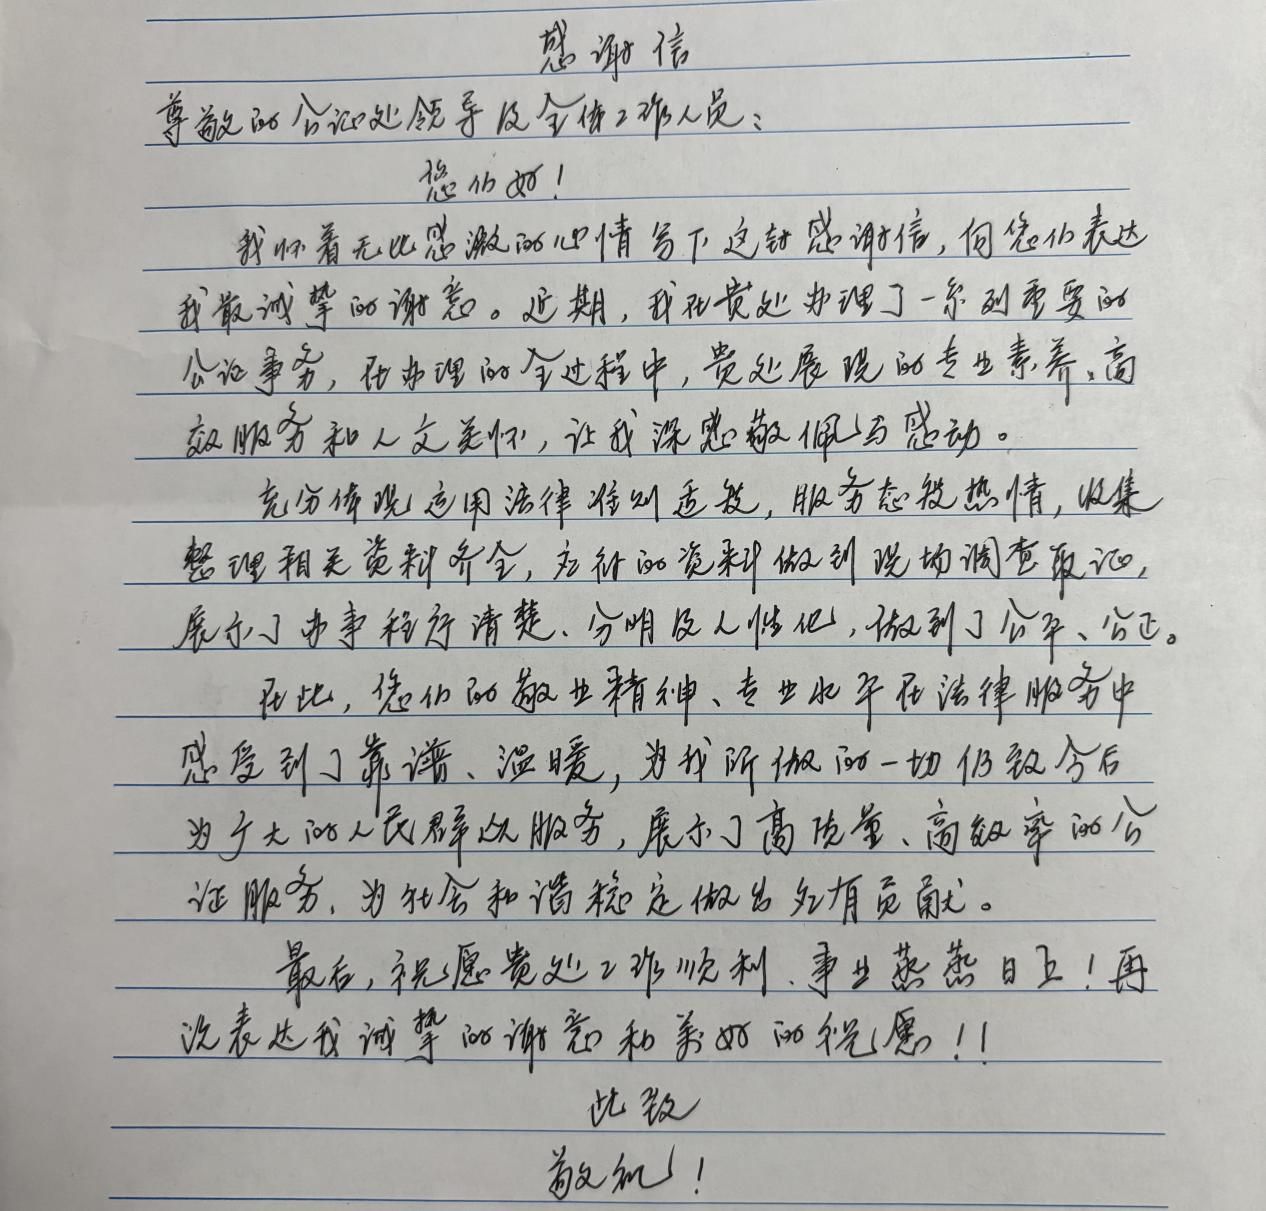 感谢信
尊敬的公证处领导及全体工作人员：
您们好！
我怀着无比感激的心情写下这封感谢信，向您们表达
我最诚挚的谢意。近期，我在贵处办理了一系列重要的
公证事务，在办理的全过程中，贵处展现的专业素养、高
效服务和人文关怀，让我深感敬佩与感动。
充分体现运用法律准则适段，服务态度热情，收集
整理相关资料齐全，应补的资料做到现场调查取证，
展示了办事程序清楚、分明及人性化，做到了公平、公正。
在此，您们的敬业精神、专业水平在法律服务中
感受到了靠谱、温暖，为我所做的一切仍致今后
为广大的人民群众服务，展示了高质量、高效率的公
证服务，为社会和谐稳定做出应有贡献。
最后，祝愿贵处工作顺利、事业蒸蒸日上！再
次表达我诚挚的谢意和美好的祝愿！！
此致
敬礼！